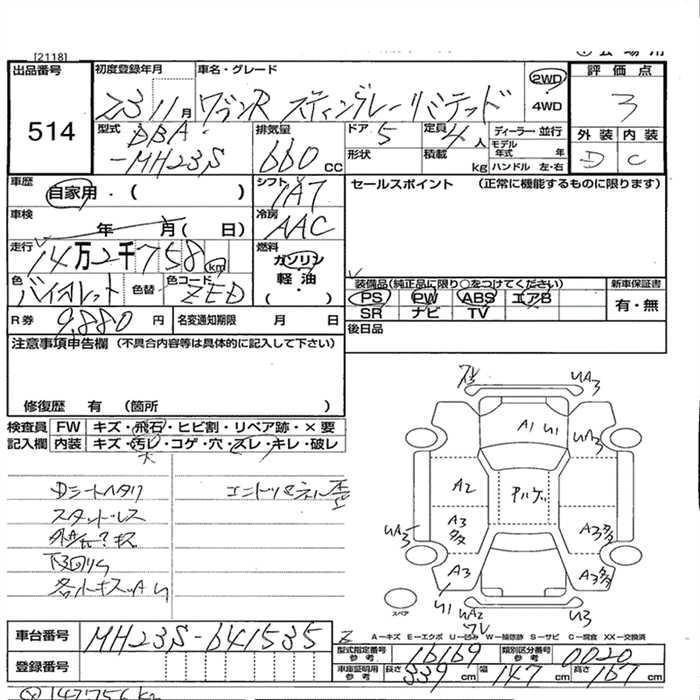 [2118]
出品番号
514
初度登録年月
23 11月
車名・グレード
ワゴンR スティングレーリミテッド
2WD
4WD
評価点
3
外装 内装
D C
型式
DBA
-MH23S
排気量
660 cc
ドア 5
形状
定員 4人
積載 kg
ディーラー・並行
モデル年式 年
ハンドル 左・右
車歴
自家用・( )
シフト
IAT
セールスポイント (正常に機能するものに限ります)
車検
年 月( 日)
冷房
AAC
走行
14万2千758km
燃料
ガソリン
軽油
( )
色
バイオレット
色替
色コード
ZED
装備品(純正品に限り○をつけてください)
PS PW ABS エアB
SR ナビ TV
新車保証書
有・無
R券 9,880円
名変通知期限 月 日
後日品
注意事項申告欄(不具合内容等は具体的に記入して下さい)
修復歴 有 (箇所 )
検査員記入欄
FW キズ・飛石・ヒビ割・リペア跡・×要
内装 キズ・汚レ・コゲ・穴・スレ・キレ・破レ
Dシートヘタリ
スタッドレス
下回りサ
UA3
A1 U1
UA3
A2
A3
A3
A3
A3
U1
UA2
U3
スペア
A－キズ E－エクボ U－凹み W－補修跡 S－サビ C－腐食 XX－交換済
車台番号
MH23S-641535
登録番号
型式指定番号 参考
16169
類別区分番号 参考
0020
車庫証明用 参考
長さ 339cm
幅 147cm
高さ 167cm
142,756km